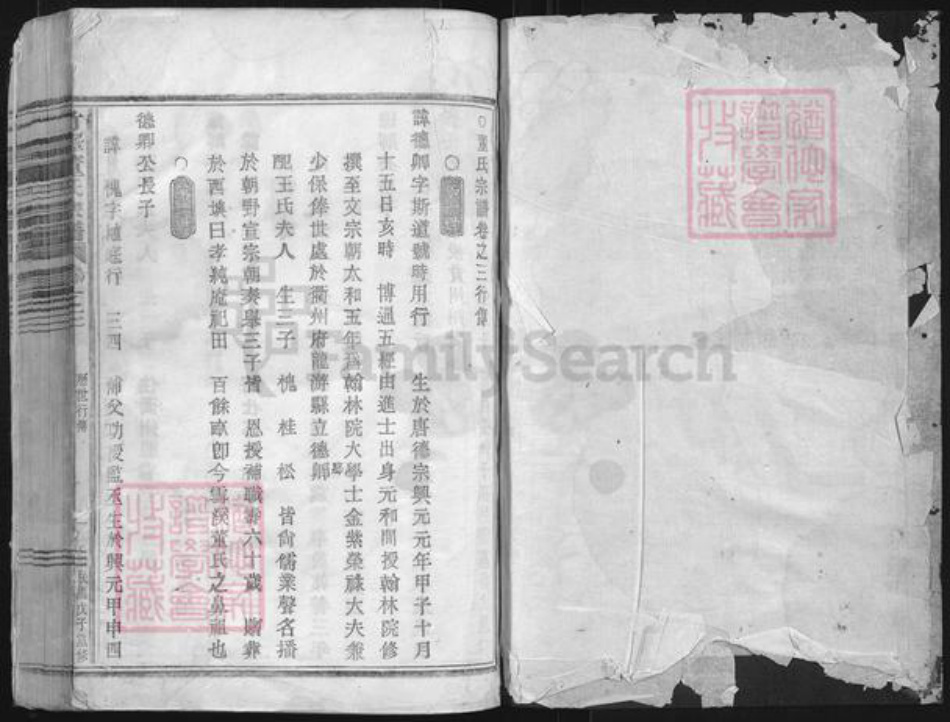 董氏宗譜卷之三行傳
諱德卿字斯道號時用行 生於唐德宗興元元年甲子十月
十五日亥時 博通五經由進士出身元和間授翰林院修
撰至文宗朝太和五年為翰林院大學士金紫榮祿大夫兼
少保俸世處於衢州府龍游縣立德鄉
配王氏夫人 生三子 槐 桂 松 皆尚儒業聲名播
於朝野宣宗朝奏舉三子補 恩授補職壽六十歲 附葬
於西 曰孝義庵祀田 百餘畝即今雲溪董氏之鼻祖也
德卿公長子
諱 槐字 庭行 三四 補父功授監丞生於興元甲申四
歷世行傳
戊子 修
遺傳家
譜學會
收藏
遺傳家
譜學會
收藏
FamilySearch